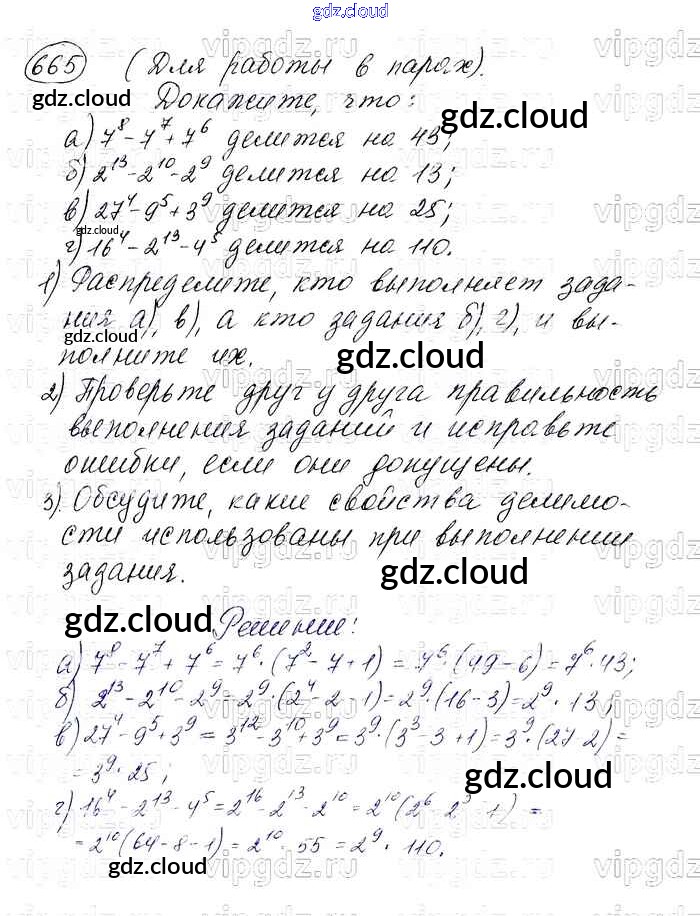 gdz.cloud
665 (Для работы в парах).
Докажите, что:
gdz.cloud
а) 7⁸ - 7⁷ + 7⁶ делится на 43;
gdz.cloud
б) 2¹³ - 2¹⁰ - 2⁹ делится на 13;
в) 27⁴ - 9⁵ + 3⁹ делится на 25;
gdz.cloud
г) 16⁴ - 2¹³ - 4⁵ делится на 110.
1) Распределите, кто выполняет зада-
ния а), в), а кто задания б), г), и вы-
полните их.
gdz.cloud
2) Проверьте друг у друга правильность
выполнения заданий и исправьте
ошибки, если они допущены.
3) Обсудите, какие свойства делимо-
сти использованы при выполнении
задания.
gdz.cloud
gdz.cloud
Решение:
а) 7⁸ - 7⁷ + 7⁶ = 7⁶ · (7² - 7 + 1) = 7⁶ · (49 - 6) = 7⁶ · 43;
б) 2¹³ - 2¹⁰ - 2⁹ = 2⁹ · (2⁴ - 2 - 1) = 2⁹ · (16 - 3) = 2⁹ · 13;
в) 27⁴ - 9⁵ + 3⁹ = 3¹² - 3¹⁰ + 3⁹ = 3⁹ · (3³ - 3 + 1) = 3⁹ · (27 - 2) =
= 3⁹ · 25;
gdz.cloud
г) 16⁴ - 2¹³ - 4⁵ = 2¹⁶ - 2¹³ - 2¹⁰ = 2¹⁰ (2⁶ - 2³ - 1) =
= 2¹⁰ (64 - 8 - 1) = 2¹⁰ · 55 = 2⁹ · 110.
gdz.cloud